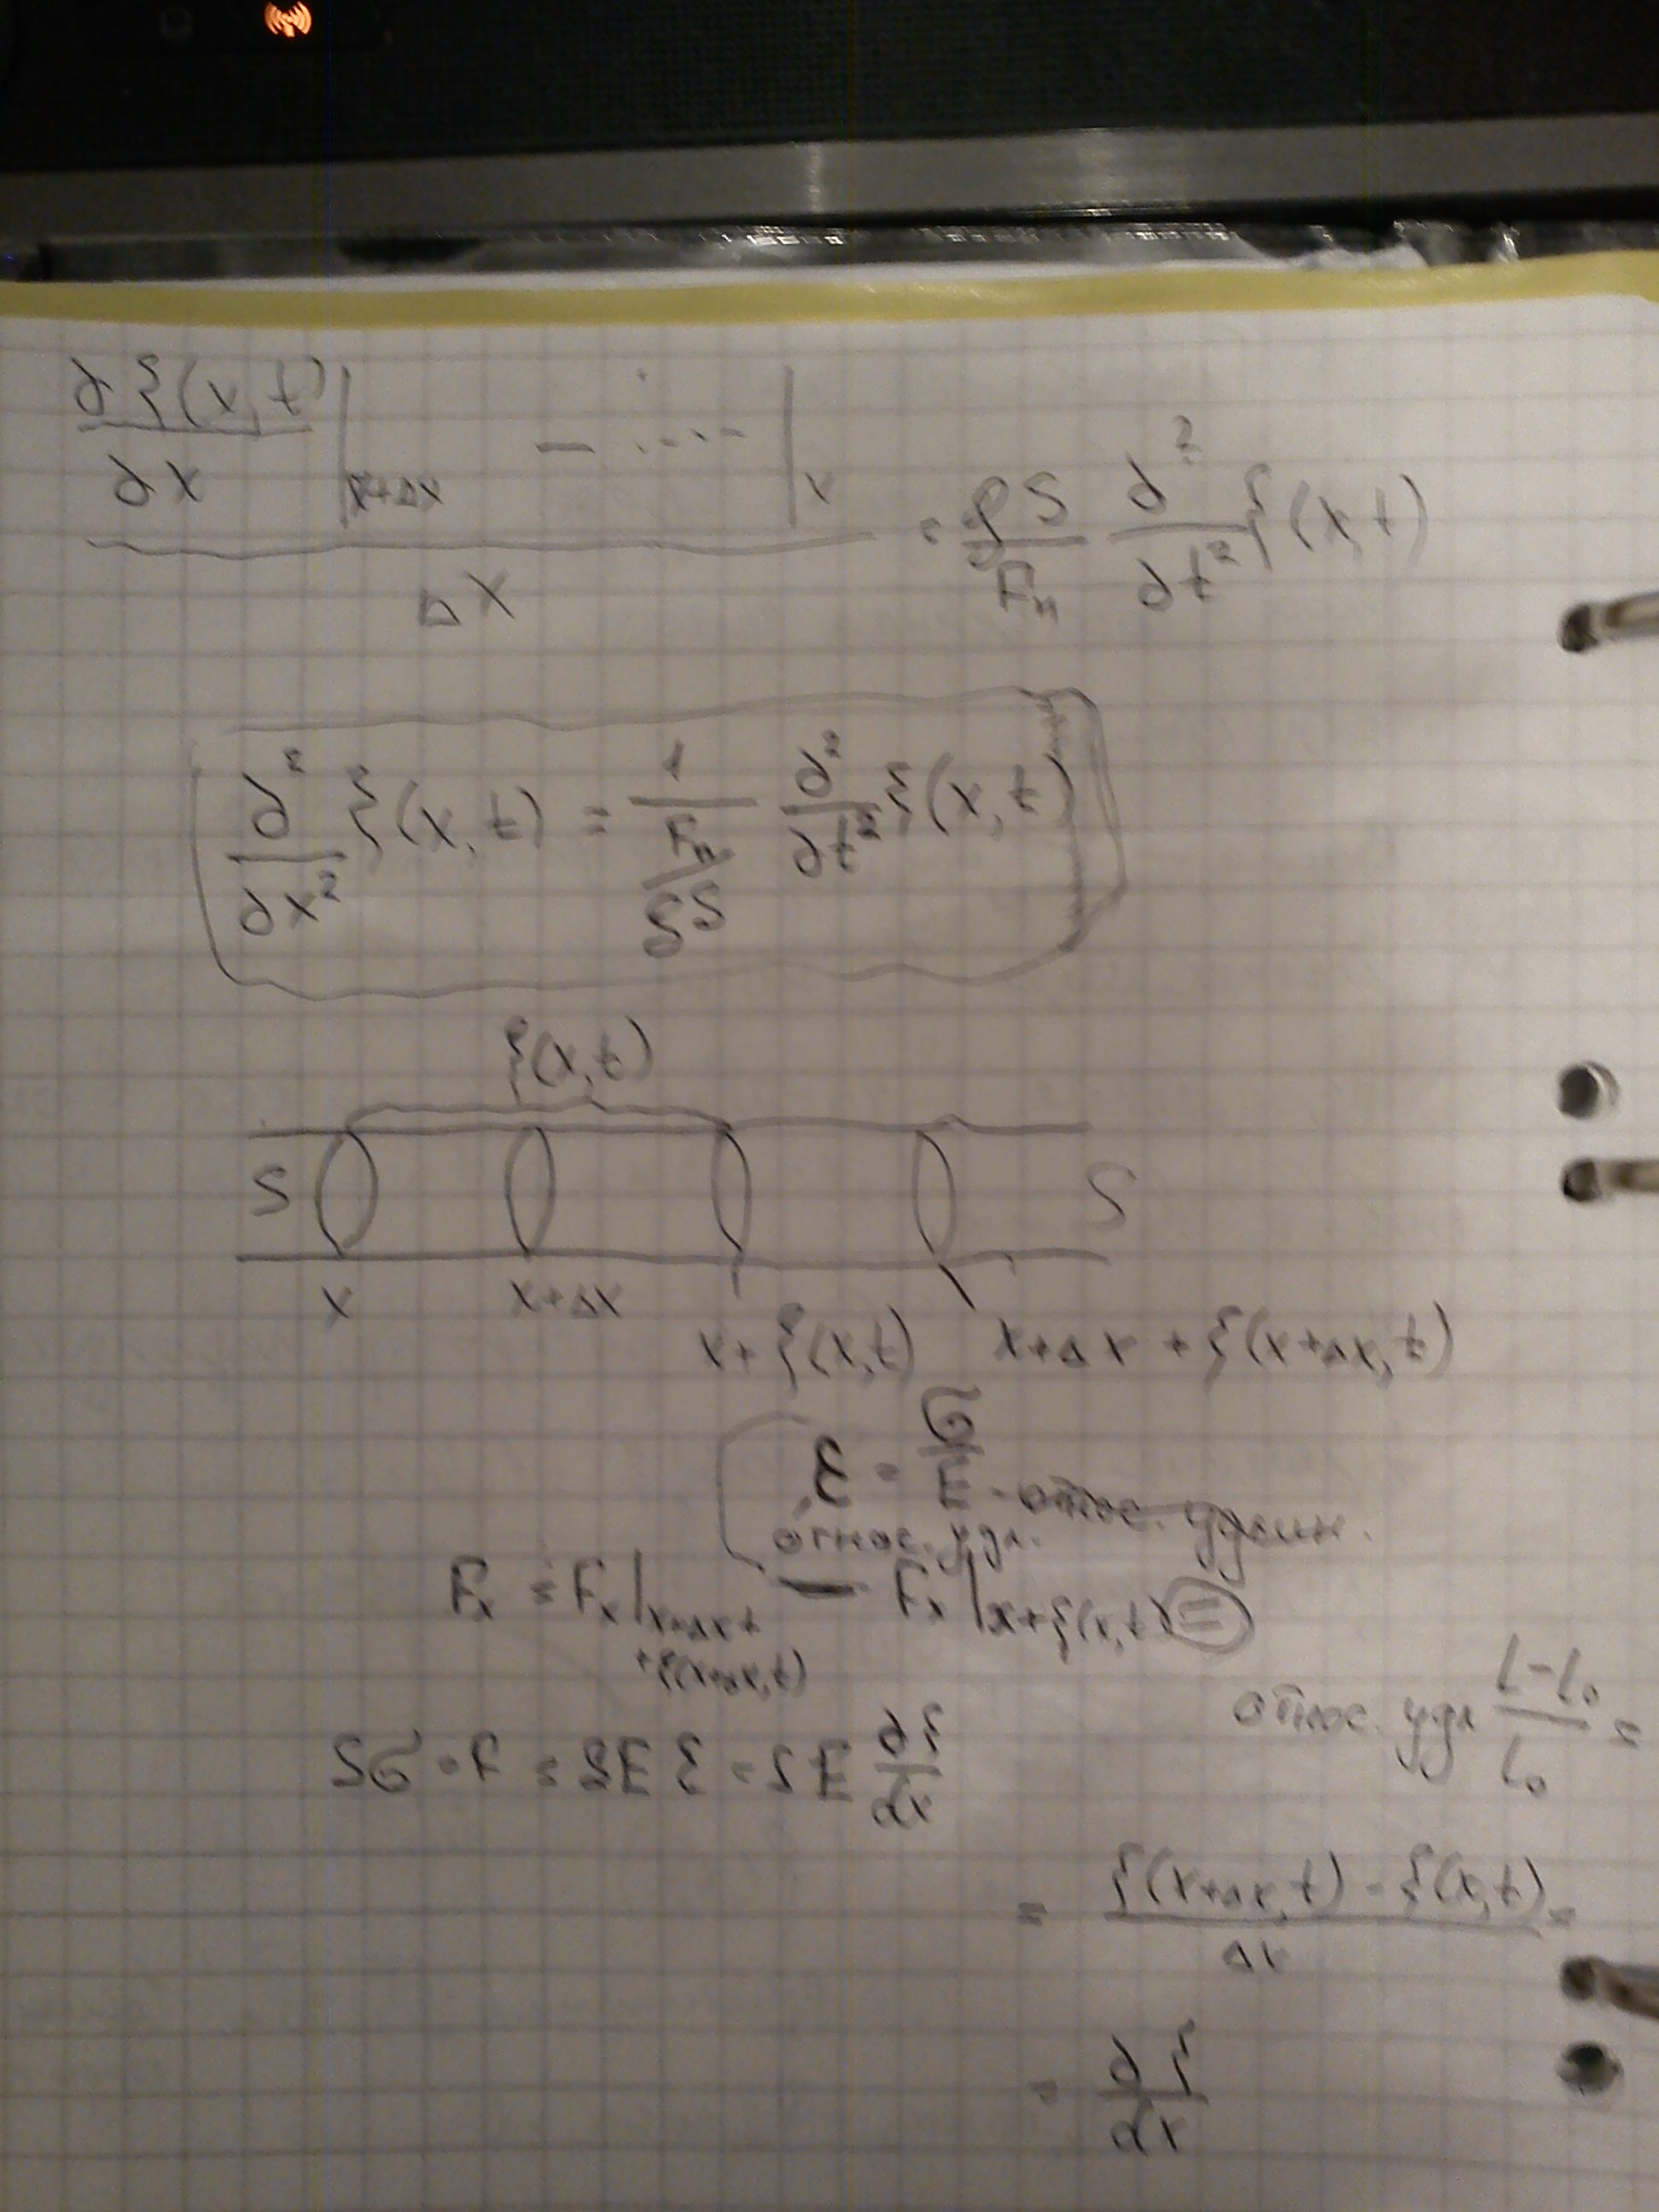 ∂ξ(x,t)/∂x |x+Δx − ..... |x / Δx = ρS/Fн ∂²/∂t² ξ(x,t)
∂²/∂x² ξ(x,t) = 1/(Fн/ρS) ∂²/∂t² ξ(x,t)
ξ(x,t)
S S
x x+Δx
x+ξ(x,t) x+Δx+ξ(x+Δx,t)
ε = σ/E - относ. удлин.
относ. удл.
Fx = Fx|x+Δx+ξ(x+Δx,t) − Fx|x+ξ(x,t) =
относ. удл (l-l₀)/l₀ =
Sσ = F = SEε = SE ∂ξ/∂x
= (ξ(x+Δx,t) - ξ(x,t))/Δx =
= ∂ξ/∂x